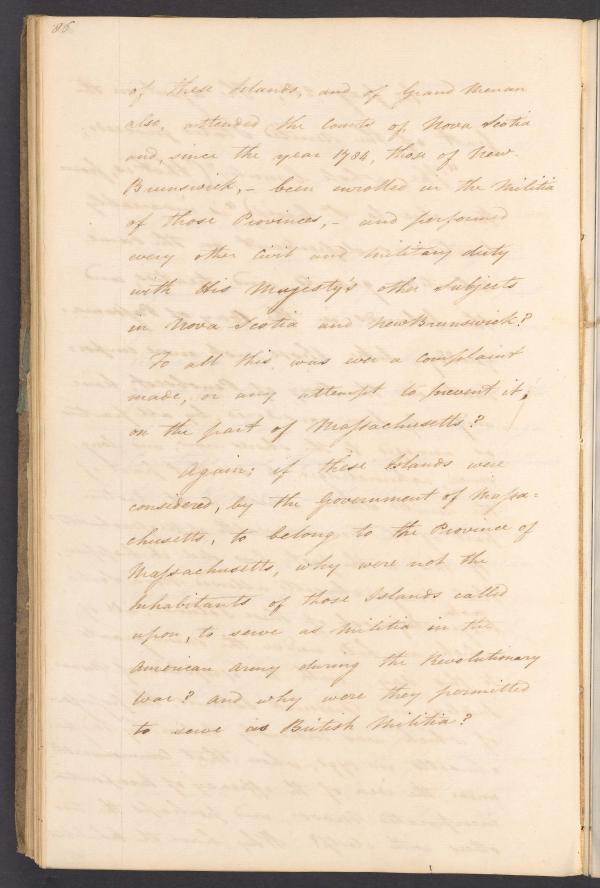 86
of these Islands, and of Grand Menan
also, attended the Courts of Nova Scotia
and, since the year 1784, those of New
Brunswick, – been enrolled in the Militia
of those Provinces, – and performed
every other Civil and Military duty
with His Majesty's other Subjects
in Nova Scotia and New Brunswick?
To all this, was ever a complaint
made, or any attempt to prevent it,
on the part of Massachusetts?
Again; if these Islands were
considered, by the Government of Massa=
chusetts, to belong to the Province of
Massachusetts, why were not the
Inhabitants of those Islands called
upon, to serve as Militia in the
American Army during the Revolutionary
War? and why were they permitted
to serve as British Militia?